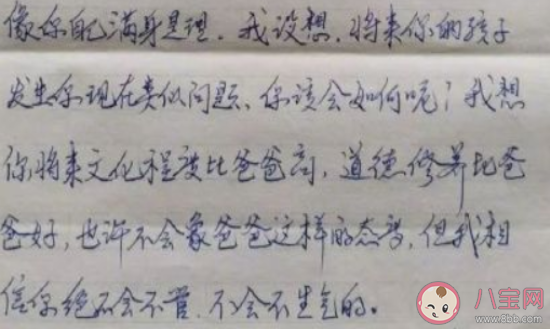 像你自己满身是理。我设想，将来你的孩子
发生你现在类似问题、你该会如何呢？我想
你将来文化程度比爸爸高，道德修养比爸
爸好，也许不会象爸爸这样的态度，但我相
信你绝不会不管，不会不生气的。
八宝网
www.8bb.com